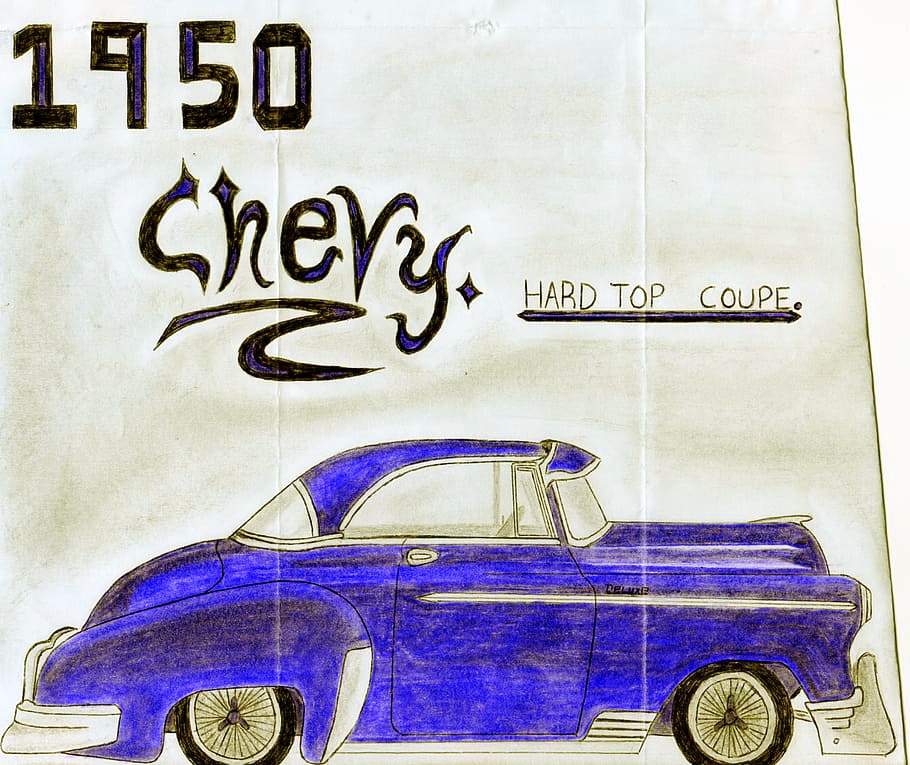 1950
Chevy.
HARD TOP COUPE.
DELUXE